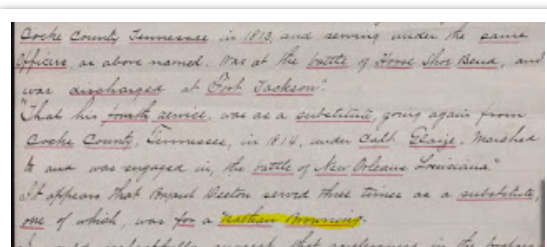 Cocke County Tennessee in 1813, and serving under the same
Officers as above named. Was at the battle of Horse Shoe Bend, and
was discharged at Fort Jackson".
"That his fourth service, was as a substitute, going again from
Cocke County, Tennessee, in 1814, under Capt Glaize. Marched
to and was engaged in, the battle of New Orleans Louisiana"
It appears that Bryant Deeton served three times as a substitute,
one of which, was for a Nathan Browning.
respectfully that